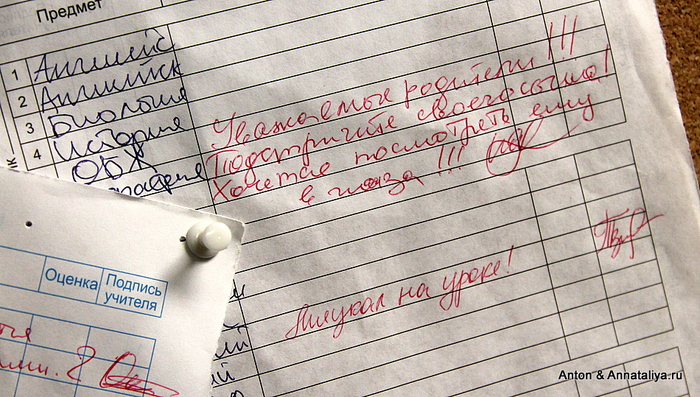 Предмет
1 Английск
2 Английск
3 Биология
4 История
ОБЖ
Уважаемые родители!!!
Подстригите своего сына!
Хочется посмотреть ему
в глаза!!!
Оценка
Подпись учителя
Мяукал на уроке!
2
Anton & Annataliya.ru